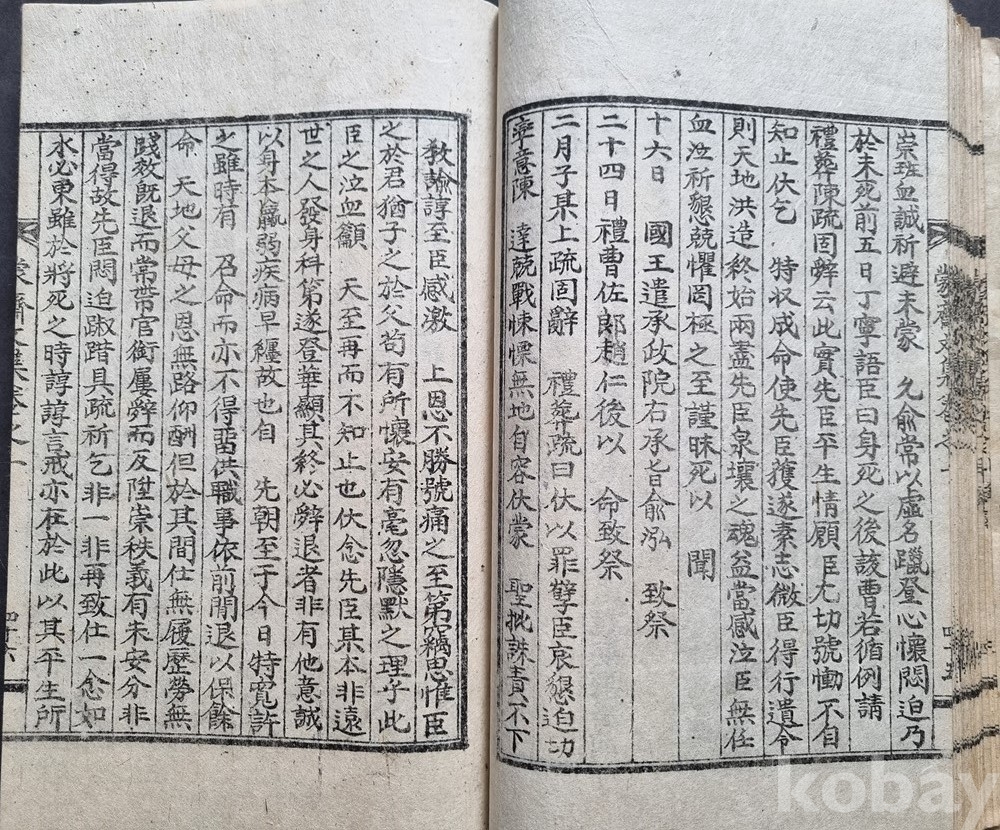 崇班血誠祈避未蒙 久俞常以虛名躐登心懷悶迫乃
於未死前五日丁寧語臣曰身死之後該曹若循例請
禮葬陳疏固辭云此實先臣平生情願臣尤切號慟不自
知止伏乞 特收成命使先臣獲遂素志微臣得行遺令
則天地洪造終始兩盡先臣泉壤之魂益當感泣臣無任
血泣祈懇兢懼罔極之至謹昧死以 聞
十六日 國王遣承政院右承旨俞泓 致祭
二十四日禮曹佐郞趙仁後以 命致祭
二月子某上疏固辭 禮葬疏曰伏以罪孽臣哀懇迫切
率意陳 達兢戰悚慄無地自容伏蒙 聖批誅責不下
敎諭諄至臣感激 上恩不勝號痛之至第竊思惟臣
之於君猶子之於父苟有所懷安有毫忽隱默之理乎此
臣之泣血籲 天至再而不知止也伏念先臣某本非遠
世之人發身科第遂登華顯其終必辭退者非有他意誠
以身本羸弱疾病早纏故也自 先朝至于今日特寬許
之雖時有 召命而亦不得畱供職事依前閒退以保餘
命 天地父母之恩無路仰酬但於其間仕無履歷勞無
踐效旣退而常帶官銜屢辭而反陞崇秩義有未安分非
當得故先臣悶迫踧踖具疏祈乞非一非再致仕一念如
水必東雖於將死之時諄諄言戒亦在於此以其平生所
四十六
kobay